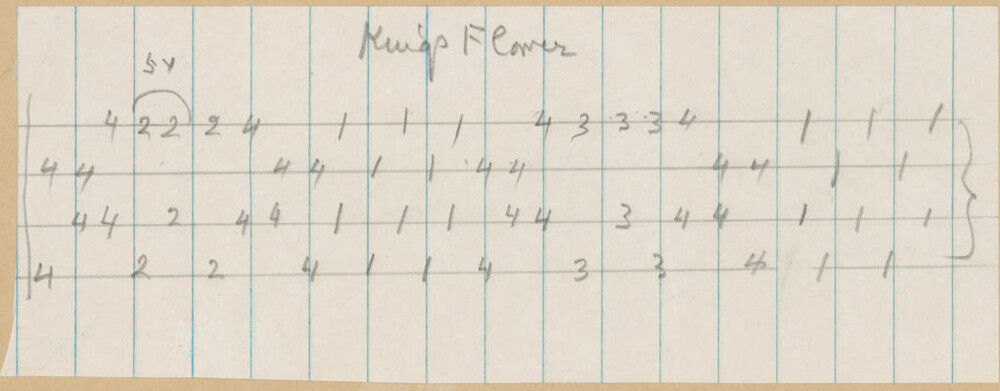 Kings Flower
5x
4 2 2 2 4 1 1 1 4 3 3 3 4 1 1 1
4 4 4 4 1 1 4 4 4 4 1 1
4 4 2 4 4 1 1 1 4 4 3 4 4 1 1 1
4 2 2 4 1 1 4 3 3 4 1 1